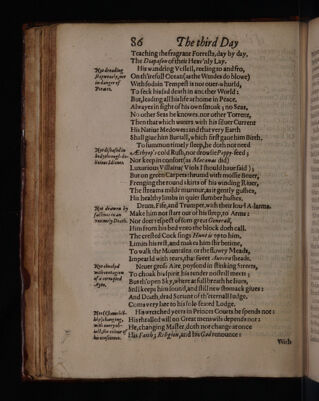 86 The third Day
Teaching the fragrant Forrests, day by day,
The Diapason of their Heav'nly Lay.
His wandring Vessell, reeling to and fro,
On th'irefull Ocean (as the Windes do blowe)
With sodain Tempest is not over-whurld,
To seek his sad death in another World:
But, leading all his life at home in Peace,
Alwayes in sight of his own smoak; no Seas,
No other Seas he knowes, nor other Torrent,
Then that which waters with his silver Current
His Native Medowes: and that very Earth
Shall give him Buriall, which first gave him Birth.
To summon timely sleep, he doth not need
Aethyop's cold Rush, nor drowsie Poppy-seed;
Nor keep in consort (as Mecaenas did)
Luxurious Villains (Viols I should have said);
But on green Carpets thrumd with mossie Bever,
Frenging the round skirts of his winding River,
The streams milde murmur, as it gently gushes,
His healthy limbs in quiet slumber hushes.
Drum, Fife, and Trumpet, with their loud A-larms,
Make him not start out of his sleep, to Arms:
Nor deer respect of som great Generall,
Him from his bed unto the block doth call.
The crested Cock sings Hunt is up to him,
Limits his rest, and makes him stir betime,
To walk the Mountains or the flowry Meads,
Impearld with tears, that sweet Aurora sheads.
Never gross Air, poysond in stinking streets,
To choak his spirit, his tender nostrill meets;
But th'open Sky, where at full breath he lives,
Still keeps him sound, and still new stomack gives:
And Death, dread Serjant of th'eternall Judge,
Coms very late to his sole-seated Lodge.
His wretched yeers in Princes Courts he spends not:
His thralled will on Great mens wils depends not:
He, changing Master, doth not change at once
His Faith; Religion, and his God renounce:
With
Not dreading
Shipwrack, nor
in danger of
Pirates.
Not diseased in
body through de-
licious Idlenes.
Not drawen by
factions to an
untimely Death.
Not choked
with contagion
of a corrupted
Ayre.